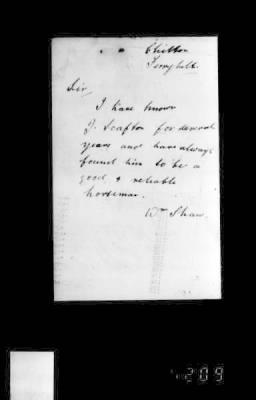 Chilton
Ferryhill
Sir
I have known
J. Scafton for several
years and have always
found him to be a
good & reliable
horseman.
Wm Shaw.
209